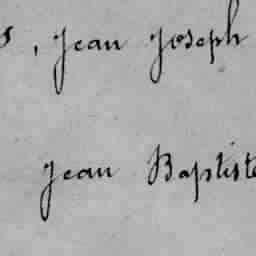 s, Jean Joseph
Jean Baptiste